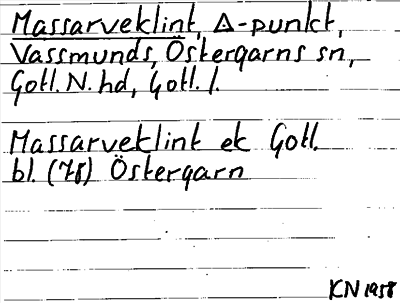 Massarveklint, Δ-punkt,
Vassmunds, Östergarns sn,
Gotl. N. hd, Gotl. l.
Massarveklint ek Gotl.
bl. (78) Östergarn
KN 1958